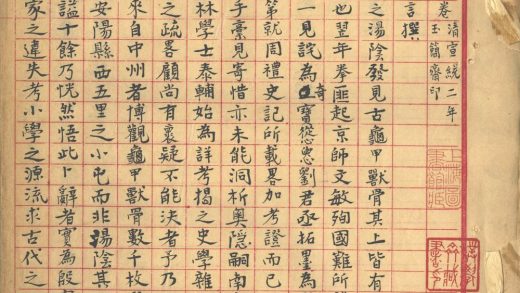 卷
清宣統二年
玉簡齋印
言撰
之湯陰發見古龜甲獸骨其上皆有
也翌年拳匪起京師文敏殉國難所
一見詫為奇寶慫恿劉君亟拓墨為
第就周禮史記所載畧加考證而已
手藳見寄惜亦未能洞析奧隱嗣南
林學士泰輔始為詳考揭之史學雜
之疏畧顧尚有褱疑不能決者予乃
來自中州者博觀龜甲獸骨數千枚
安陽縣西五里之小屯而非湯陰其
謚十餘乃恍然悟此卜辭者實為殷
家之違失考小學之源流求古代之
上海圖書館藏